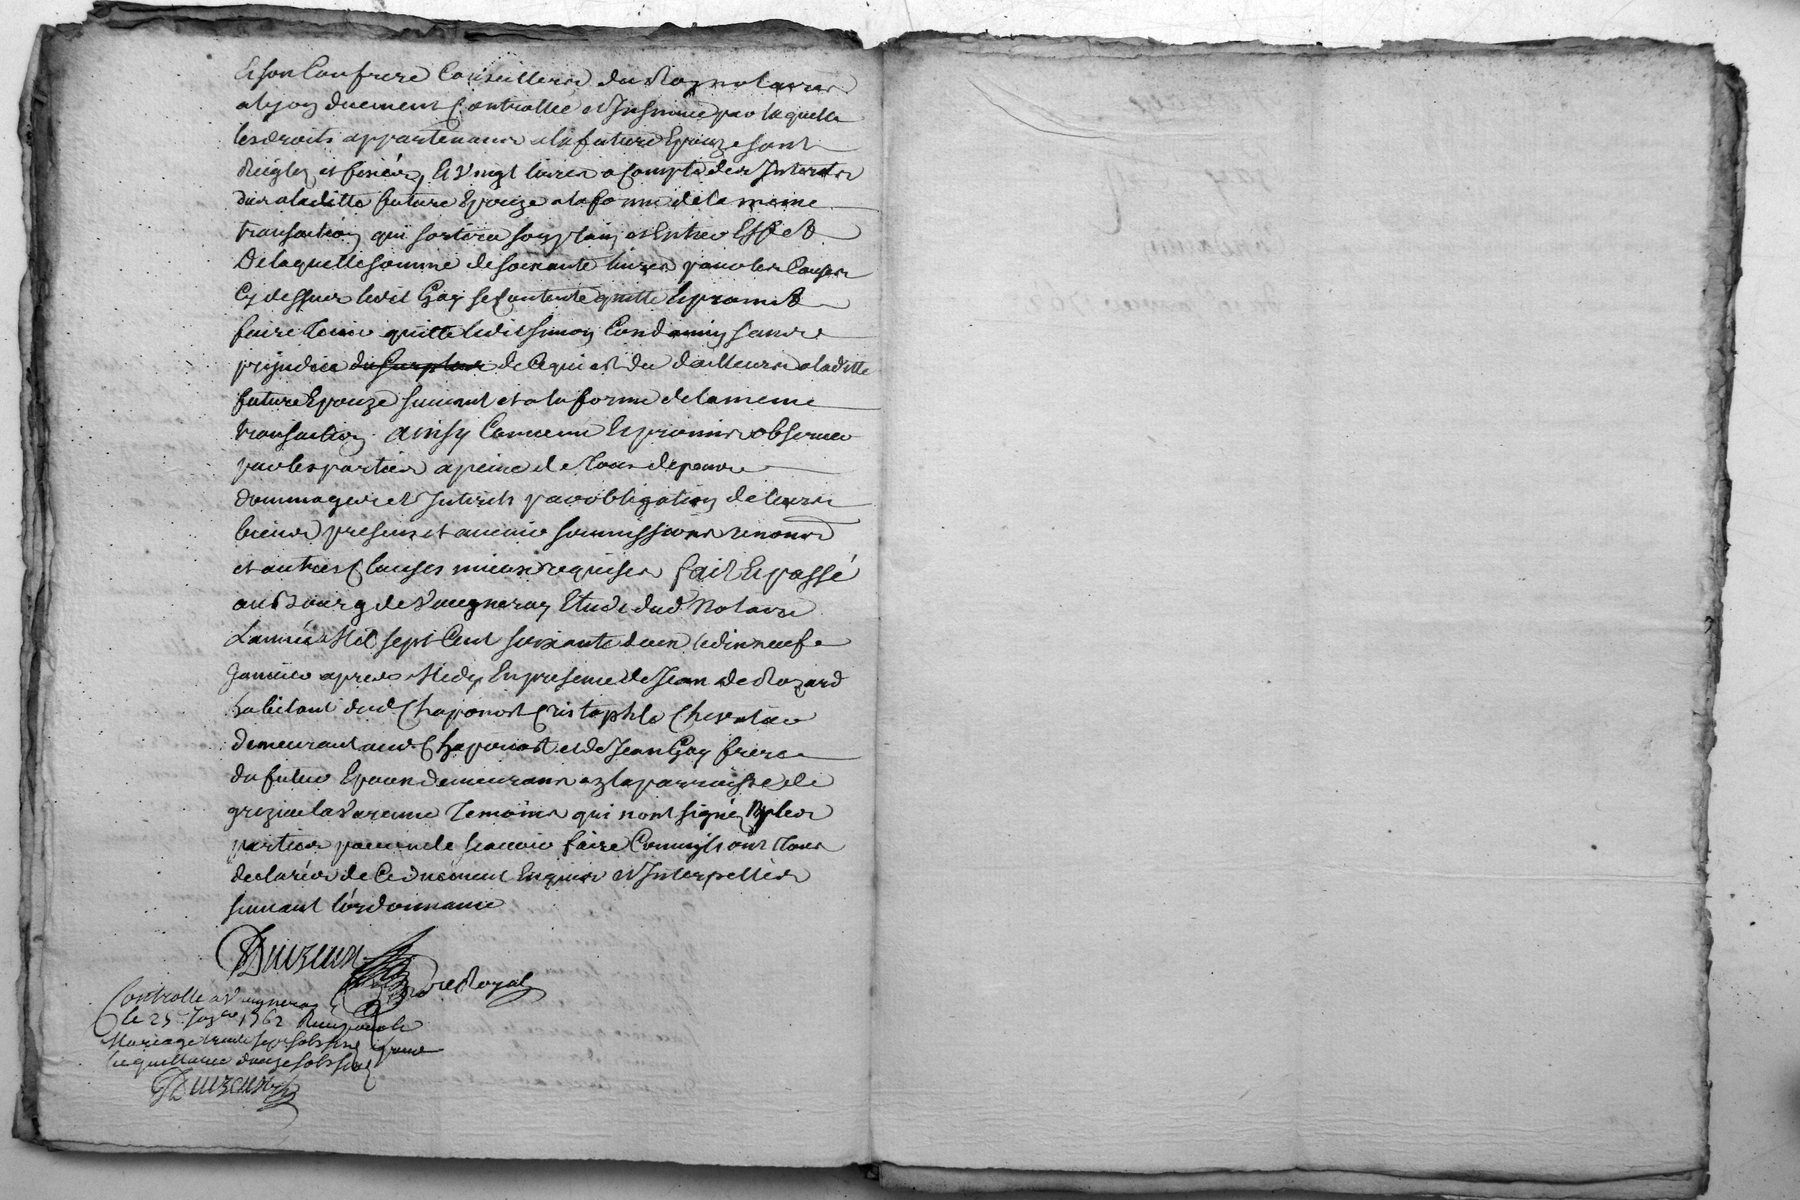 et son Confrere Conseillers du Roy notaires
a lyon duement Controllée et Insinuée par laquelle
les droits appartenants a la future Epouze sont
Reiglez et fixés, et vingt livres a Compte des Interets
dus a laditte future Epouze a la forme de la meme
transaction qui sortira son plain et Entier Effet
De laquelle somme de soixante livres pour les Causes
Cy dessus ledit Gay se Contente quitte et promet
faire tenir quitte ledit Simon Condamin sans
prejudice du Surplus de Ce qui est du dailleurs a laditte
future Epouze suivant et a la forme de la meme
transaction. ainsy Convenu et promis observer
par les parties a peine de tous depens
dommages et Interets par obligation de leurs
biens presens et avenir soumissions renons
et autres Clauses mieux requises fait et passé
au Bourg de Vaugneray Etude dud Notaire
L'année Mil sept Cent soixante deux le dixneuf
Janvier apres Midy En presence de Jean de Rozard
habitant dud Chaponost Cristophle Chevatier
demeurant aud Chaponost et de Jean Gay frere
du futur Epoux demeurant ez la parroisse de
grezieu la Varenne Temoins qui n'ont signé Ny les
parties pour ne le scavoir faire Comm'ils ont tous
declarés de Ce duement Enquis et Interpellés
suivant l'ordonnance
Duizeux
No.re Royal
Controllé a Vaugneray
le 25 Janv.er 1762 Reçu pour le
Mariage trente sept sols
la quittance douze sols
Duizeux